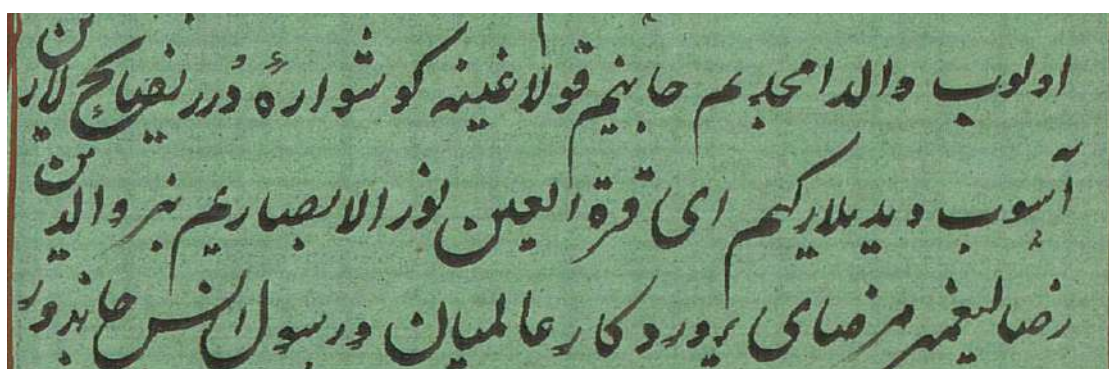 اولوب والد امجدیم جانیم قولاغینه کوشوارهٔ دُرر نصایح لار دین
آسوب دیدیلار کیم ای قرة العین نور الابصاریم بیز والدین
رضالیغیمیز رضای پروردکار عالمیان و رسول انس جاندور